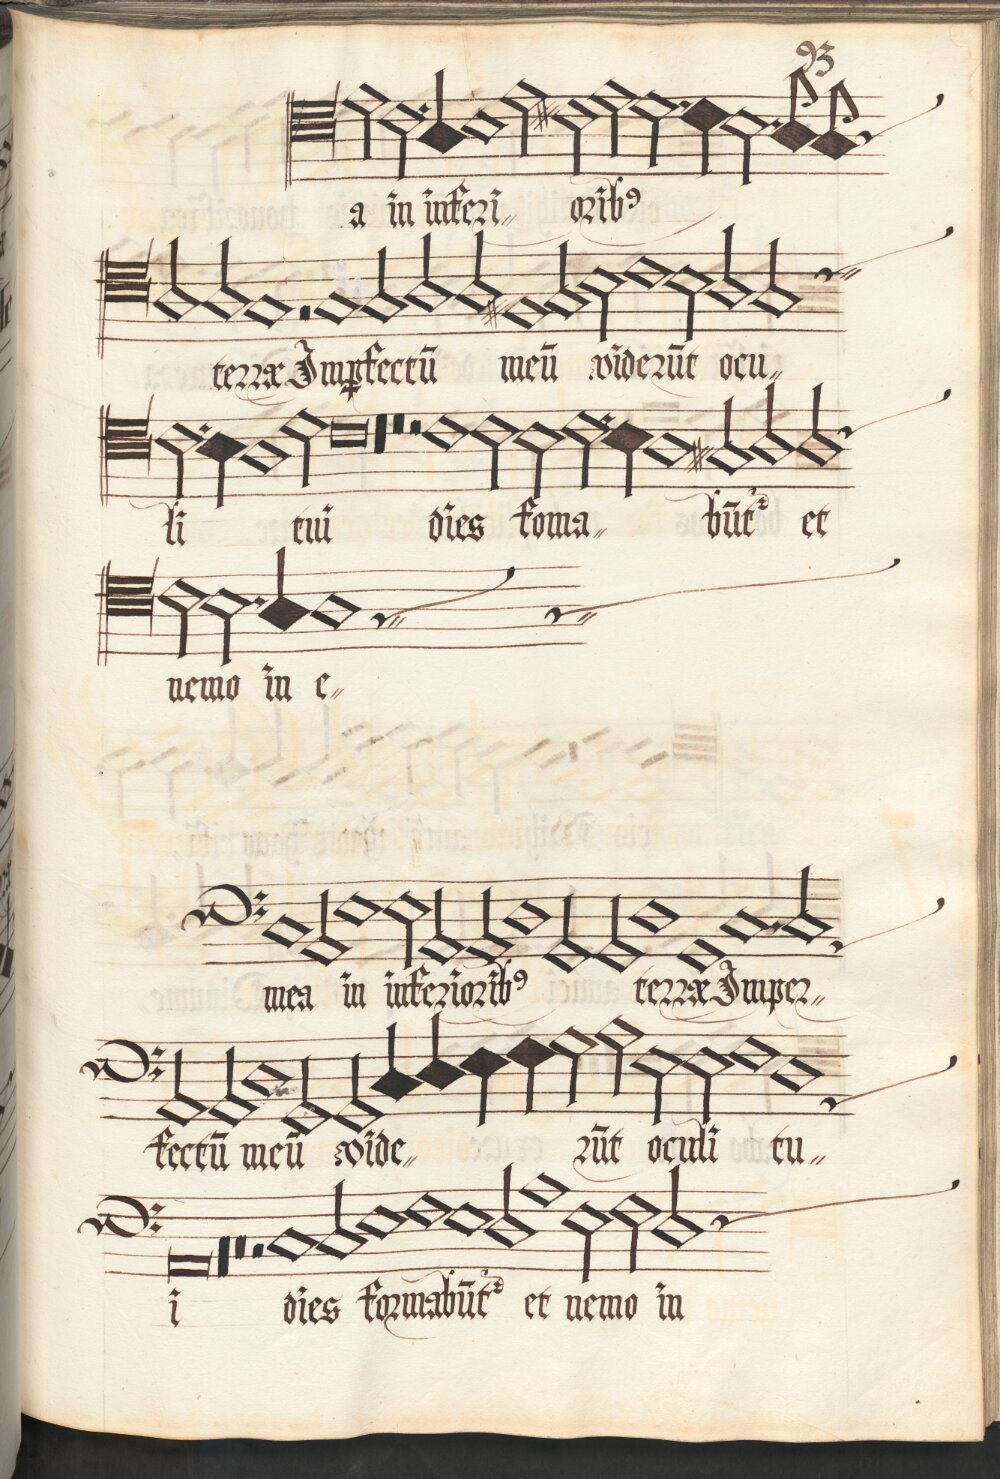 93
a in inferi〃 oribꝰ
terræ Imꝑfectū meū viderūt ocu〃
li tui dies foma〃 būtᷣ et
nemo in e〃
mea in inferioribꝰ terræ Imper〃
fectū meū vide〃 rūt oculi tu〃
i dies formabūtᷣ et nemo in